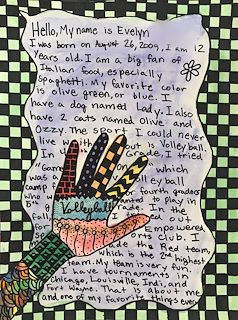 Hello, My name is Evelyn
I was born on August 26, 2004, I am 12
Years old. I am a big fan of
Italian food, especially
Spaghetti. My favorite color
is olive green, or blue. I
have a dog named Lady. I also
have 2 cats named Olive and
Ozzy. The sport I could never
live without is Volleyball.
In Grade, I tried
which
was a volleyball
camp fourth graders
who wanted to play in
fall. In the
out
Empowered
Sports Club. I
made the Red team,
which is the 2nd highest
team. My team is very fun.
I have tournaments in
Chicago, Louisville, Indi, and
Fort Wayne. That is about me
and one of my favorite things ever
Volleyball!